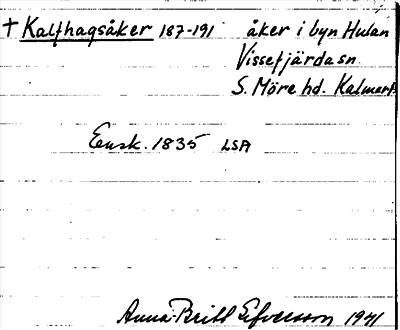 † Kalfhagsåker 187-191 åker i byn Hulan
Vissefjärda sn.
S. Möre hd. Kalmar l.
Ensk. 1835 LSA
Anna-Britt Elfversson 1971